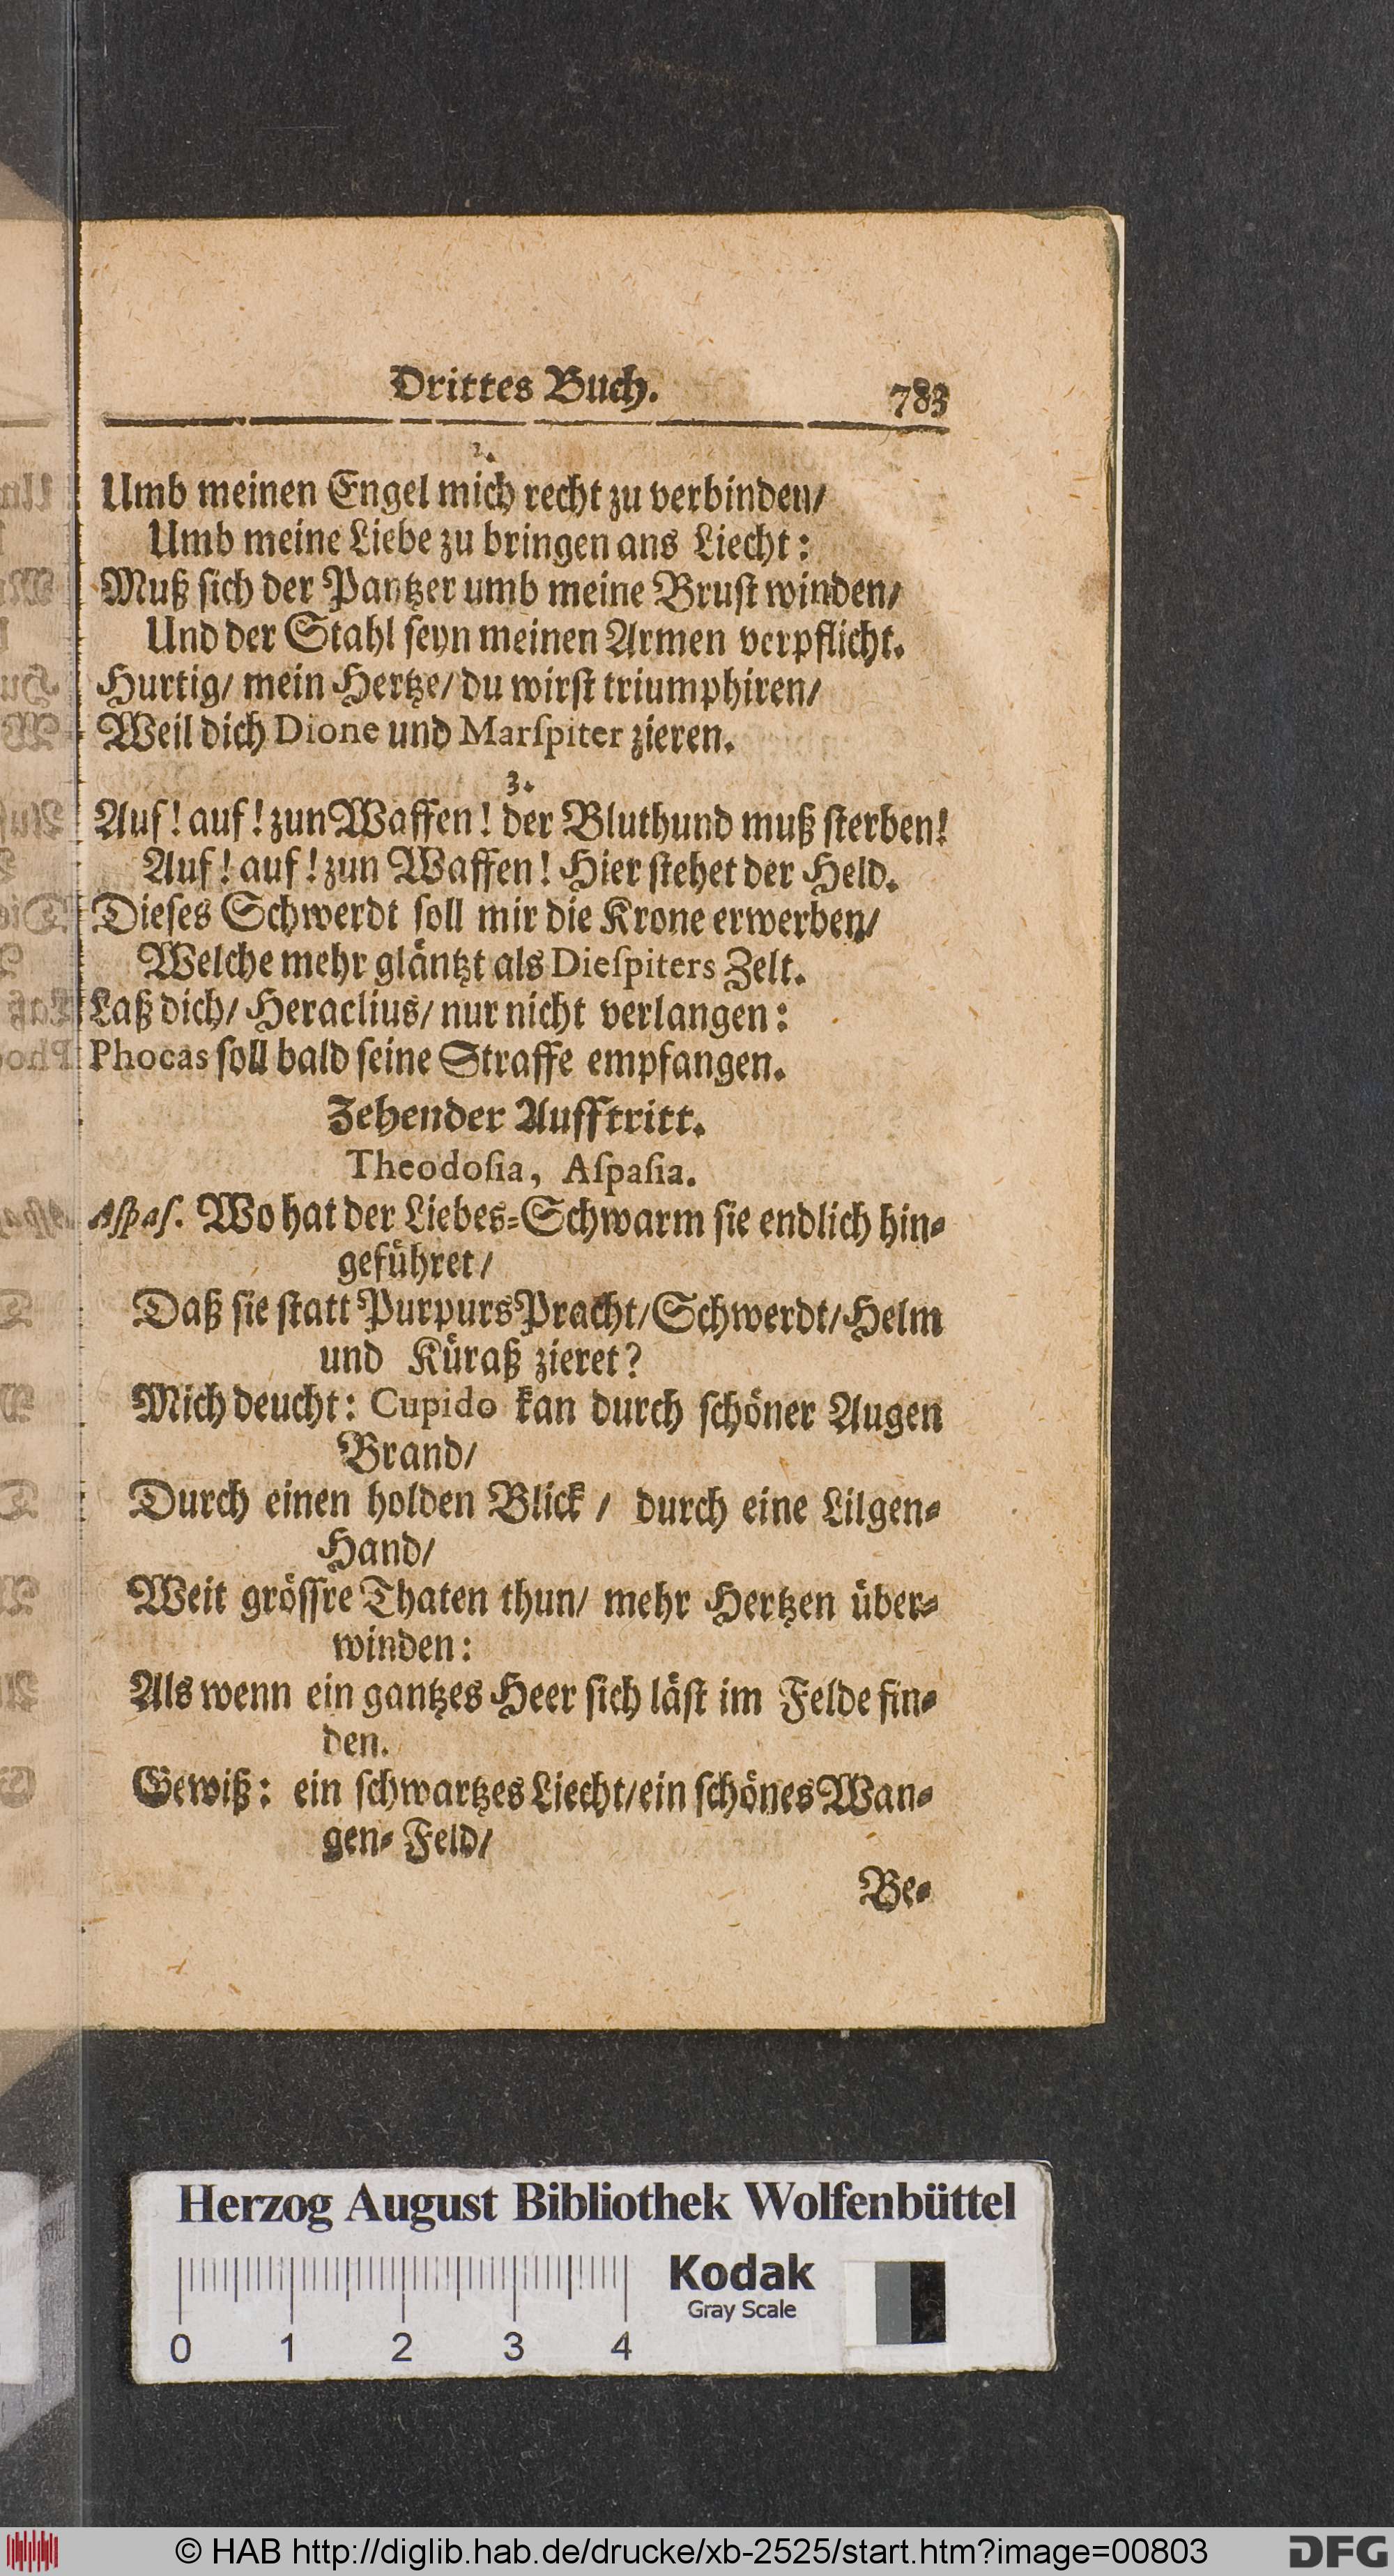 Drittes Buch. 783
2.
Umb meinen Engel mich recht zu verbinden/
Umb meine Liebe zu bringen ans Liecht:
Muß ſich der Pantzer umb meine Bruſt winden/
Und der Stahl ſeyn meinen Armen verpflicht.
Hurtig/ mein Hertze/ du wirſt triumphiren/
Weil dich Dione und Marſpiter zieren.
3.
Auf! auf! zun Waffen! der Bluthund muß ſterben!
Auf! auf! zun Waffen! Hier ſtehet der Held.
Dieſes Schwerdt ſoll mir die Krone erwerben/
Welche mehr gläntzt als Dieſpiters Zelt.
Laß dich/ Heraclius/ nur nicht verlangen:
Phocas ſoll bald ſeine Straffe empfangen.
Zehender Aufftritt.
Theodoſia, Aſpaſia.
Aſpaſ. Wo hat der Liebes-Schwarm ſie endlich hin-
geführet/
Daß ſie ſtatt Purpurs Pracht/ Schwerdt/ Helm
und Küraß zieret?
Mich deucht: Cupido kan durch ſchöner Augen
Brand/
Durch einen holden Blick/ durch eine Lilgen-
Hand/
Weit gröſſre Thaten thun/ mehr Hertzen über-
winden:
Als wenn ein gantzes Heer ſich läſt im Felde fin-
den.
Gewiß: ein ſchwartzes Liecht/ ein ſchönes Wan-
gen-Feld/
Be-
Herzog August Bibliothek Wolfenbüttel
Kodak
Gray Scale
0 1 2 3 4
© HAB http://diglib.hab.de/drucke/xb-2525/start.htm?image=00803
DFG